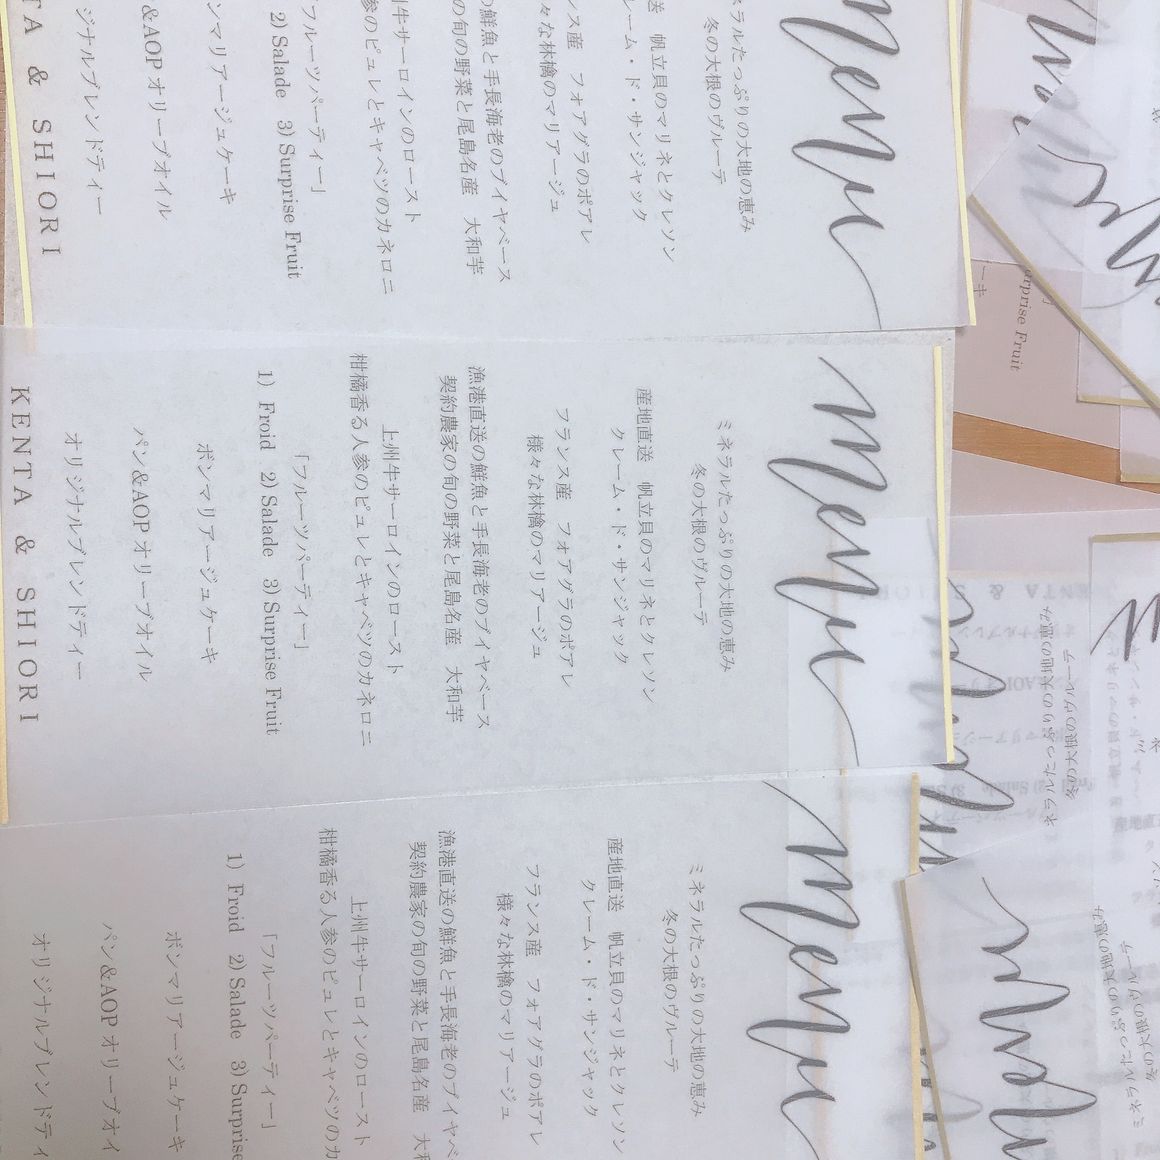 menu
ミネラルたっぷりの大地の恵み
冬の大根のヴルーテ
産地直送 帆立貝のマリネとクレソン
クレーム・ド・サンジャック
フランス産 フォアグラのポアレ
様々な林檎のマリアージュ
漁港直送の鮮魚と手長海老のブイヤベース
契約農家の旬の野菜と尾島名産 大和芋
上州牛サーロインのロースト
柑橘香る人参のピュレとキャベツのカネロニ
「フルーツパーティー」
1) Froid 2) Salade 3) Surprise Fruit
ボンマリアージュケーキ
パン&AOPオリーブオイル
オリジナルブレンドティー
KENTA & SHIORI
menu
ネラルたっぷりの大地の恵み
冬の大根のヴルーテ
帆立貝のマリネとクレソン
レーム・ド・サンジャック
ンス産 フォアグラのポアレ
々な林檎のマリアージュ
の鮮魚と手長海老のブイヤベース
の旬の野菜と尾島名産 大和芋
州牛サーロインのロースト
参のピュレとキャベツのカネロニ
フルーツパーティー」
2) Salade 3) Surprise Fruit
ンマリアージュケーキ
&AOPオリーブオイル
ジナルブレンドティー
TA & SHIORI
menu
ミネラルたっぷりの大地の恵み
冬の大根のヴルーテ
産地直送 帆立貝のマリネとクレソン
クレーム・ド・サンジャック
フランス産 フォアグラのポアレ
様々な林檎のマリアージュ
漁港直送の鮮魚と手長海老のブイヤベ
契約農家の旬の野菜と尾島名産 大
上州牛サーロインのロースト
柑橘香る人参のピュレとキャベツのカ
「フルーツパーティー」
1) Froid 2) Salade 3) Surprise
ボンマリアージュケーキ
パン&AOPオリーブオイ
オリジナルブレンドティ
urprise Fruit
ーキ
ネラルたっぷりの大地の恵み
冬の大根のヴルーテ
ミネラルたっぷりの大地の恵み
冬の大根のヴルーテ